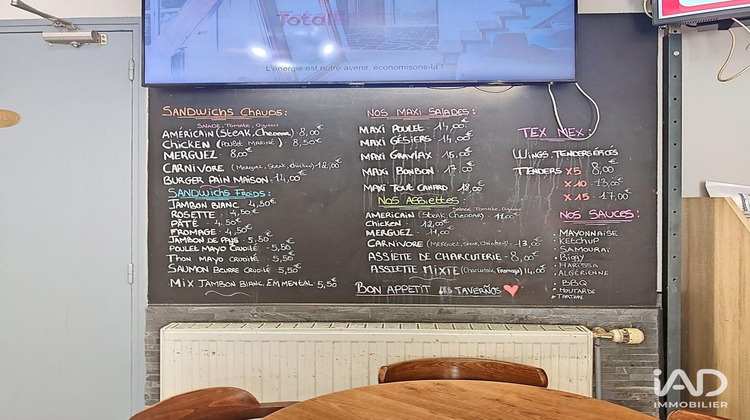 Total
L'énergie est notre avenir, économisons-la !
SANDWICHS CHAUDS:
SALADE, Tomate, Oignons
AMÉRICAIN (Steak, Cheddar) - 8,00€
CHICKEN (POULET MARINÉ) - 8,50€
MERGUEZ - 8,00€
CARNIVORE (Merguez, Steak, Chicken) 12,00€
BURGER PAIN MAISON - 14,00€
SANDWICHS FROIDS:
JAMBON BLANC - 4,50€
ROSETTE - 4,50€
PÂTÉ - 4,50€
FROMAGE - 4,50€
JAMBON DE PAYS - 5,50€
POULET MAYO CRUDITÉ - 5,50€
THON MAYO CRUDITÉ - 5,50€
SAUMON BEURRE CRUDITÉ - 5,50€
MIX JAMBON BLANC, EMMENÉAL 5,50€
NOS MAXI SALADES:
MAXI POULET - 14,00€
MAXI GÉSIERS - 14,00€
MAXI GRAVLAX - 15,00€
MAXI BONBON - 17,00€
MAXI TOUT CANARD - 18,00€
NOS ASSIETTES:
SALADE, Tomate, Oignons
AMERICAIN (Steak, CHEDDAR) - 12,00€
CHICKEN - 12,00€
MERGUEZ - 11,00€
CARNIVORE (MERGUEZ, Steak, Chicken) - 13,00€
ASSIETTE DE CHARCUTERIE - 8,00€
ASSIETTE MIXTE (Charcuterie, Fromage) 14,00€
BON APPETIT LES TAVERÑOS
TEX MEX:
WINGS, TENDERS ÉPICÉS
TENDERS x5 - 8,00€
x10 - 13,00€
x15 - 17,00€
NOS SAUCES:
- MAYONNAISE
- KETCHUP
- SAMOURAÏ
- BIGGY
- HARISSA
- ALGÉRIENNE
- BBQ
- MOUTARDE
- TARTARE
iAD
IMMOBILIER